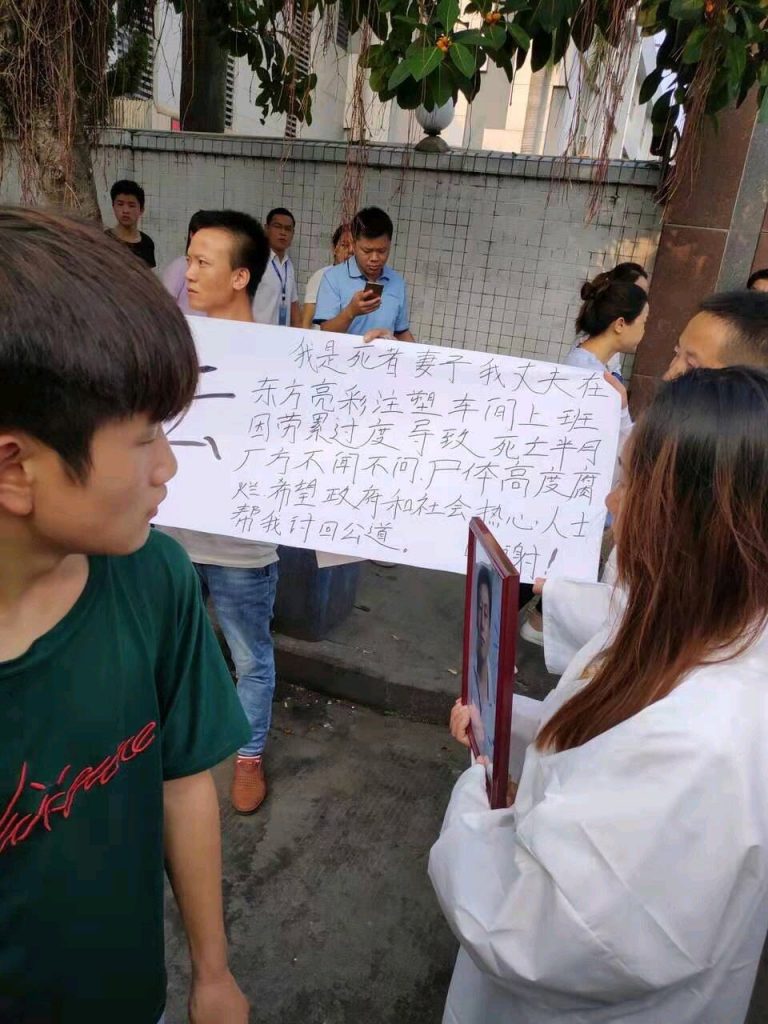 我是死者妻子我丈夫在
东方亮彩注塑车间上班
因劳累过度导致死亡半月
厂方不闻不问.尸体高度腐
烂希望政府和社会热心人士
帮我讨回公道。 谢!